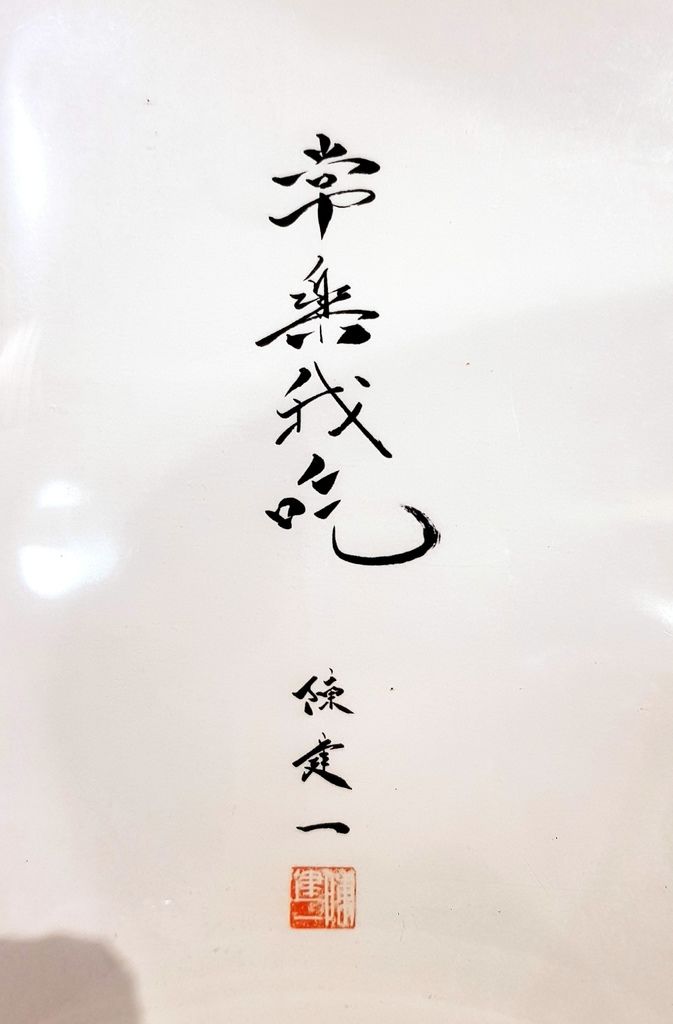 常楽我吃
陳建一
陳建一